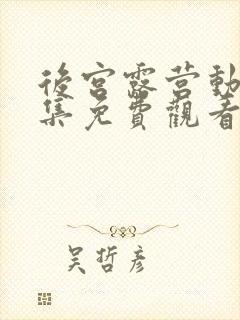 後宮露营動
集免費觀看
吴哲彦